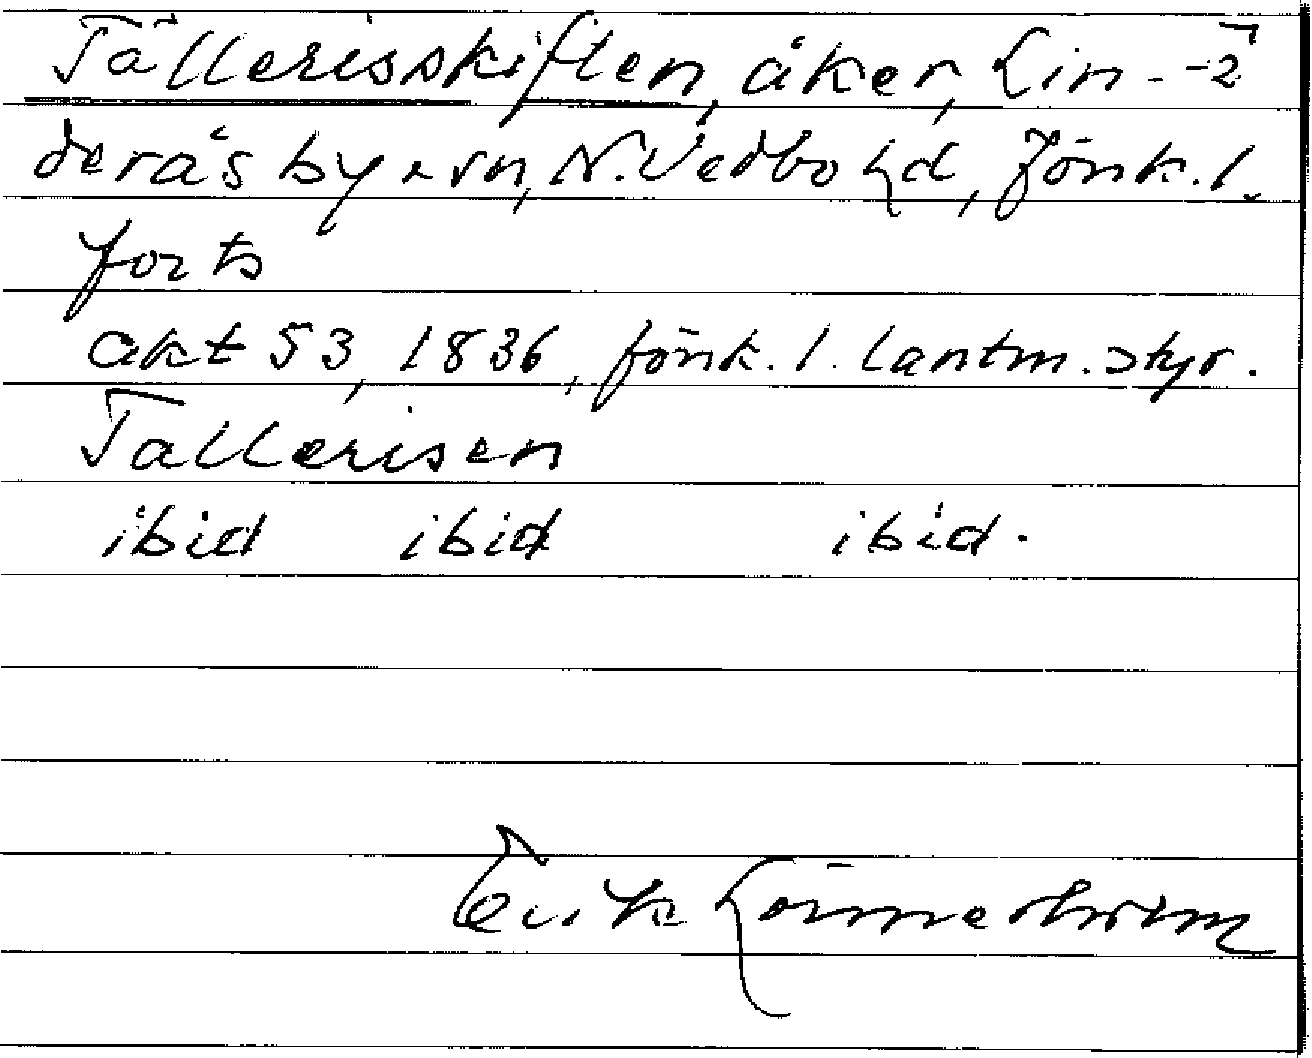 Tällerisskiften, åker, Lin- -2
derås by, sn, N. Vedbo hd, Jönk. l.
forts
akt 53, 1836, Jönk. l. lantm. styr.
Tallerisen
ibid ibid ibid.
Erik Lönnerholm